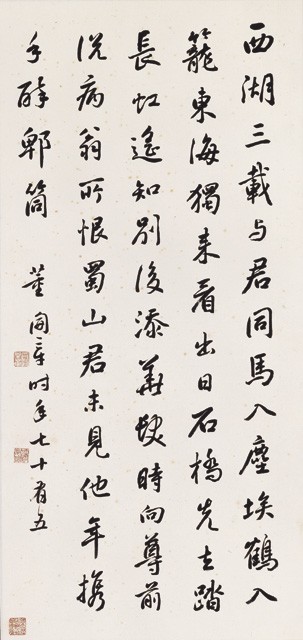 西湖三載与君同馬入塵埃鶴入
籠東海獨来看出日石橋先去踏
長虹遙知別後添華髮時向尊前
説病翁所恨蜀山君未見他年携
手醉郫筒 董開章时年七十有五